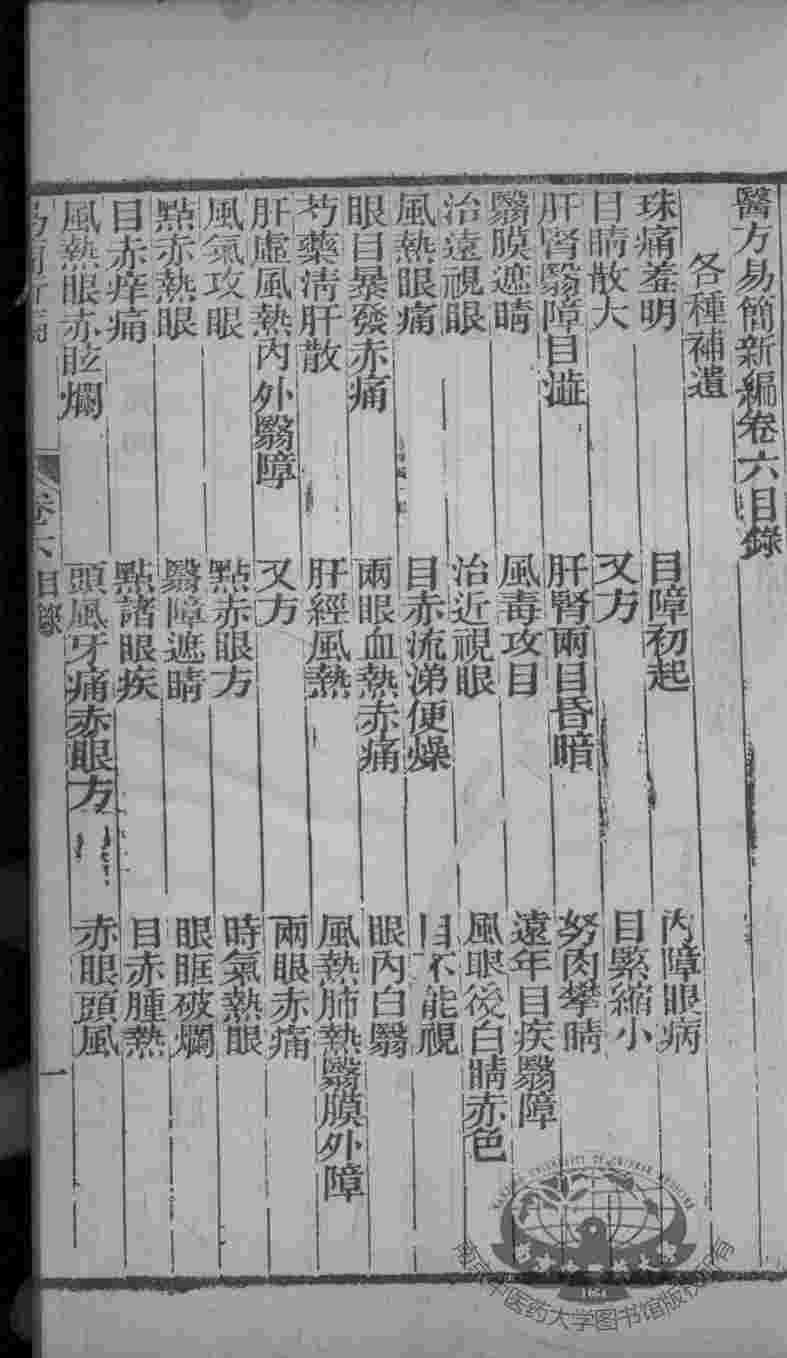 醫方易簡新編卷六目錄
各種補遺
珠痛羞明
目障初起
內障眼病
目睛散大
又方
目緊縮小
肝腎翳障目澁
肝腎兩目昏暗
努肉攀睛
翳膜遮睛
風毒攻目
遠年目疾翳障
治遠視眼
治近視眼
風眼後白睛赤色
風熱眼痛
目赤流涕便燥
目不能視
眼目暴發赤痛
兩眼血熱赤痛
眼內白翳
芍藥清肝散
肝經風熱
風熱肺熱翳膜外障
肝虛風熱內外翳障
又方
兩眼赤痛
風氣攻眼
點赤眼方
時氣熱眼
點赤熱眼
翳障遮睛
眼眶破爛
目赤痒痛
點諸眼疾
目赤腫熱
風熱眼赤眩爛
頭風牙痛赤眼方
赤眼頭風
卷六目錄
一
NANJING UNIVERSITY OF CHINESE MEDICINE
南京中医药大学图书馆版权所有